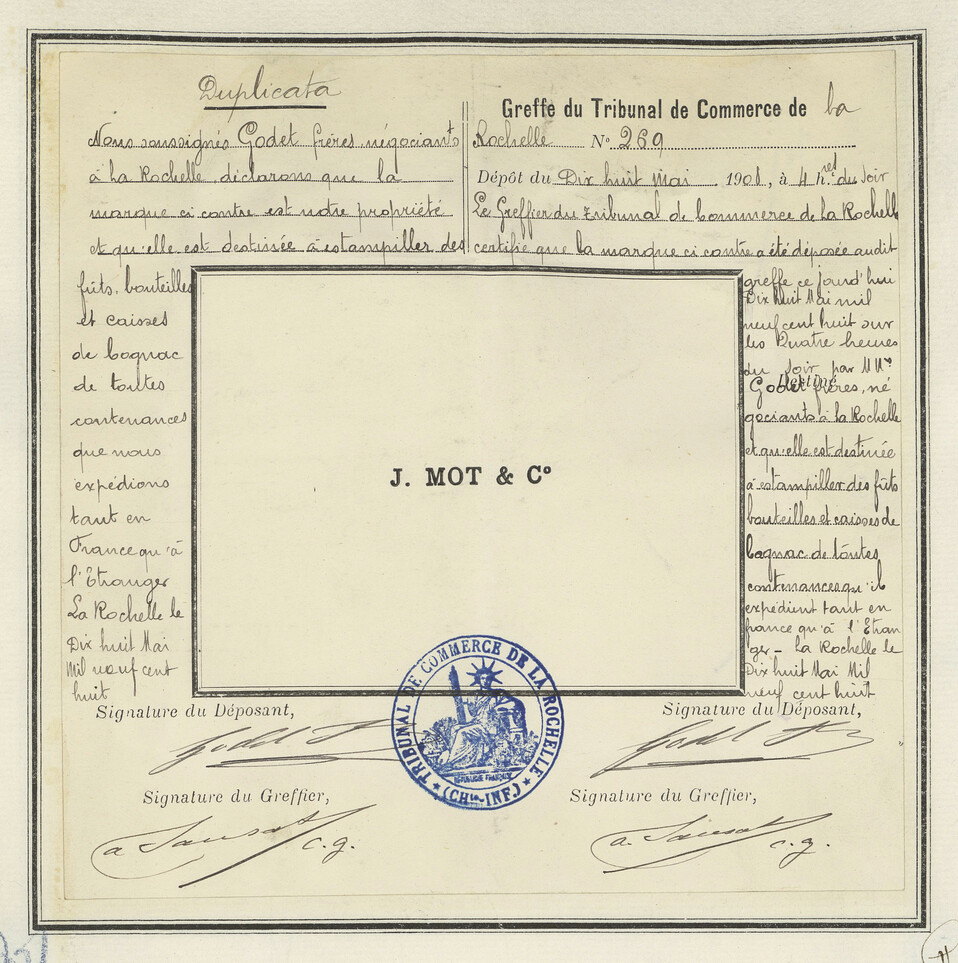 Duplicata
Nous soussignés Godet frères, négociants
à La Rochelle, déclarons que la
marque ci contre est notre propriété
et qu'elle est destinée à estampiller des
fûts, bouteilles
et caisses
de Cognac
de toutes
contenances
que nous
expédions
tant en
France qu'à
l'Etranger
La Rochelle le
Dix huit Mai
Mil neuf cent
huit
Signature du Déposant,
Godet F
Signature du Greffier,
a Sausat
c.g.
Greffe du Tribunal de Commerce de La
Rochelle N° 269
Dépôt du Dix huit Mai 1908, à 4 hres du Soir
Le Greffier du Tribunal de Commerce de La Rochelle
certifie que la marque ci contre a été déposée audit
greffe ce jourd'hui
Dix huit Mai mil
neuf cent huit sur
les Quatre heures
du Soir par MM.
Godet frères, né
gociants à la Rochelle
et qu'elle est destinée
à estampiller des fûts
bouteilles et caisses de
Cognac de toutes
contenances qu'il
expédient tant en
france qu'à l'Etran
ger - La Rochelle le
Dix huit Mai Mil
neuf cent huit
Signature du Déposant,
Godet F
Signature du Greffier,
a. Sausat
c.g.
J. MOT & Cº
TRIBUNAL DE COMMERCE DE LA ROCHELLE
RÉPUBLIQUE FRANÇAISE
(CHte-INF.)